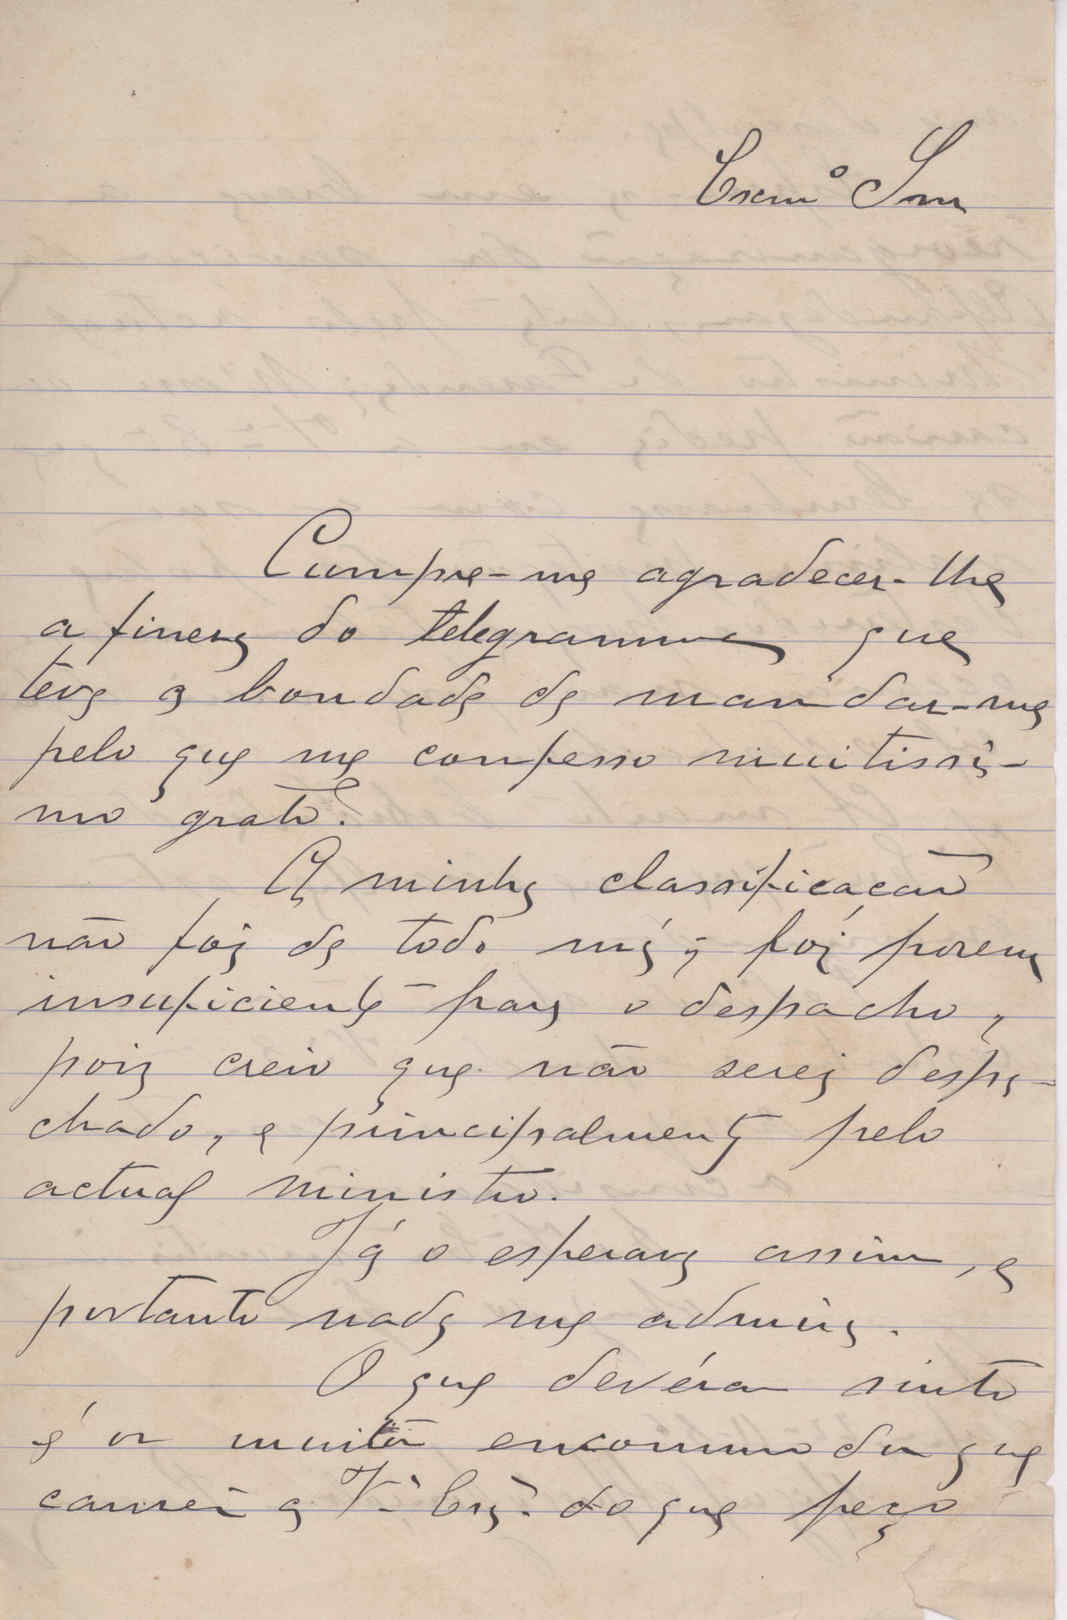 Exmº Snr
Cumpre-me agradecer-lhe
a fineza do telegramma que
teve a bondade de mandar-me
pelo que me confesso muitissi-
mo grato.
A minha classificação
não foi de todo má; foi porem
insuficiente para o despacho,
pois creio que não serei despa-
chado, e principalmente pelo
actual ministro.
Já o esperava assim, e
portanto nada me admira.
O que devéras sinto
é os muitos encommodos que
causei a V. Exª. do que peço